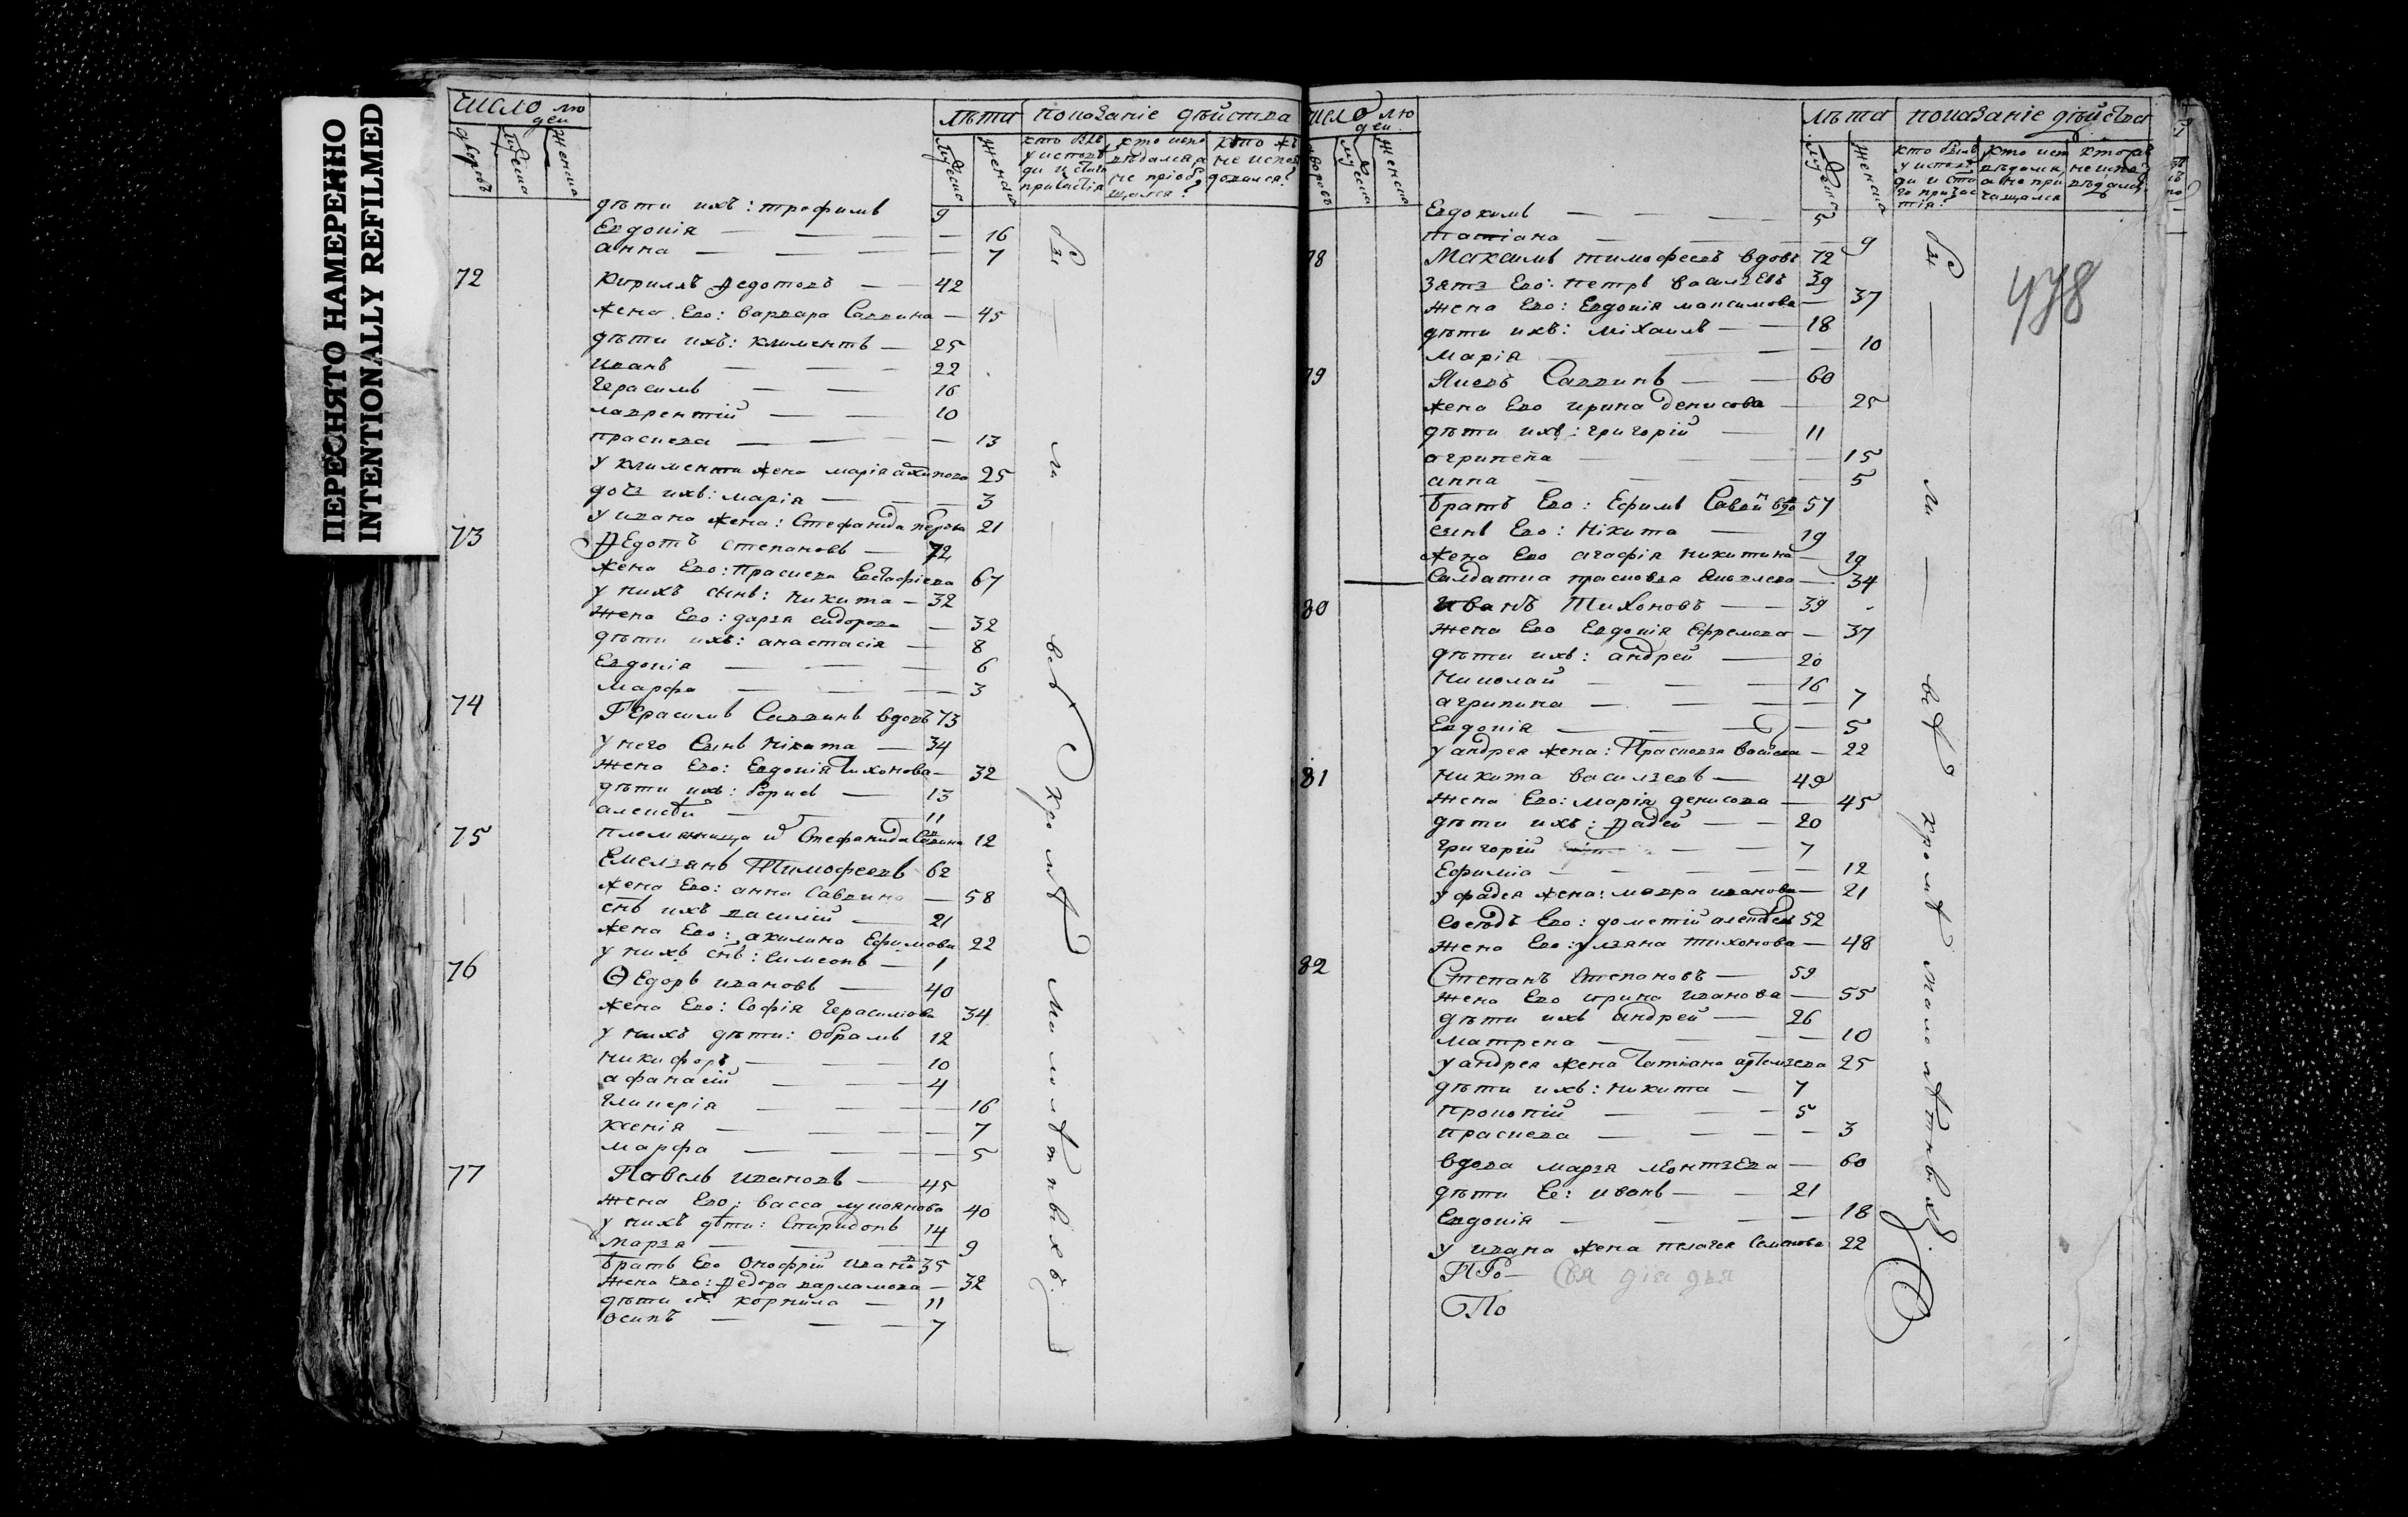 ПЕРЕСНЯТО НАМЕРЕННО
INTENTIONALLY REFILMED
число людей
дворовъ
мужеска
женска
лѣта
мужеска
женска
показаніе дѣйства
кто былъ у исповѣди и свята причастія
кто исповѣдался а не пріобщался?
кто же не исповѣдался?
дѣти ихъ: трофимъ 9
Евдокія — 16
анна — 7
72 Кирилъ Федотовъ — 42
жена Его: варвара Саввина — 45
дѣти ихъ: климентъ — 25
иванъ — 22
Герасимъ — 16
лаврентій — 10
праскева — 13
у климента жена марія архипова 25
дочь ихъ: марія — 3
у ивана жена: Стефанида 21
73 Федотъ степановъ — 72
жена Его: Праскева Евстафіева 67
у нихъ сынъ: никита — 32
жена Его: дарья сидорова — 32
дѣти ихъ: анастасія — 8
Евдокія — 6
марфа — 3
74 Герасимъ Саввинъ вдовъ 73
у него Сынъ Нікита — 34
жена Его: Евдокія Тихонова — 32
дѣти ихъ: борисъ — 13
алексѣй — 11
75 племянница Стефанида 12
Емельянъ Тимофеевъ 62
жена Его: анна Саввина — 58
снъ ихъ василій — 21
жена Его: акилина Ефимова 22
у нихъ снъ: симеонъ — 1
76 Ѳедоръ ивановъ — 40
жена Его: Софія Герасимова 34
у нихъ дѣти: Обрамъ 12
никифоръ — 10
афанасій — 4
Гликерія — 16
ксенія — 7
марфа — 5
77 Павелъ ивановъ — 45
жена Его: васса лукоянова 40
у нихъ дѣти: Спиридонъ 14
марья — 9
братъ Его Онофрій ивановъ 35
жена Его: Федора варламова — 32
дѣти их: корнила — 11
осипъ — 7
бы — ли — всѣ кромѣ малолѣтнвіхъ
число людей
дворовъ
мужеска
женска
лѣта
мужеска
женска
показаніе дѣйства
кто былъ у исповѣди и стаго причастія?
кто исповѣдался, а не причащался
Евдокимъ — 5
татіана — 9
78 Максимъ тимофеевъ вдовъ 72
зять Его: петръ васильевъ 39
жена Его: Евдокія максимова — 37
дѣти ихъ: міхаилъ — 18
марія — 10
79 Яковъ Саввинъ — 60
жена Его ирина денисова — 25
дѣти ихъ: григорій — 11
агрипена — 15
анна — 5
братъ Его: Ефимъ Саввин вдо 57
сынъ Его: Нікита — 19
жена Его агафія никитина — 19
Салдатка прасковья — 34
80 иванъ Тихоновъ — 39
жена Его Евдокія Ефремова — 37
дѣти ихъ: андрей — 20
николай — 16
агрипина — 7
Евдокія — 5
у андрея жена: Прасковья — 22
81 никита васильевъ — 49
жена Его: марія денисова — 45
дѣти ихъ: Фадей — 20
григорій — 7
Ефимія — 12
у фадея жена: мавра иванова — 21
сосѣдъ Его: дометій алексѣев 52
жена Его: ульяна тихонова — 48
82 Степанъ Степановъ — 59
жена Его ирина иванова — 55
дѣти ихъ андрей — 26
матрена — 10
у андрея жена Татіана артемьева 25
дѣти ихъ: никита — 7
прокопій — 5
праскева — 3
вдова марья — 60
дѣти Ее: иванъ — 21
Евдокія — 18
у ивана жена пелагея Семенова 22
ПРо—
По
бы — ли — всѣ кромѣ малолѣтнвіхъ